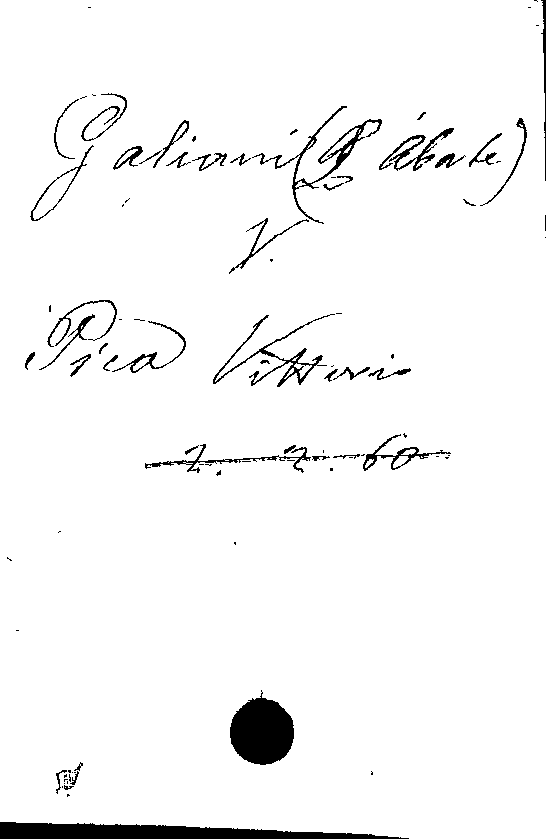 Galiani (L' Abate)
V.
Pica Vittorio
2. 2. 60